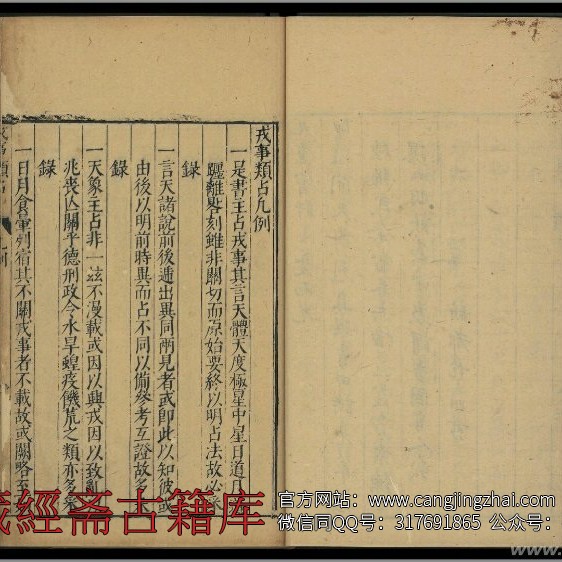 戎事類占凡例
一是書主占戎事其言天體天度極星中星日道月
躔離晷刻雖非關切而原始要終以明占法故必
錄
一言天諸說前後遞出異同兩見者或即此以知彼或
由後以明前時異而占不同以備參考互證故多
錄
一天象主占非一玆不漫載或因以興戎因以致亂
兆喪亾關乎德刑政令水旱蝗疫饑荒之類亦多
錄
一日月食暈列宿其不關戎事者不載故或關略至
藏經斋古籍库
官方网站：www.cangjingzhai.com
微信同QQ号：317691865 公众号：
www.